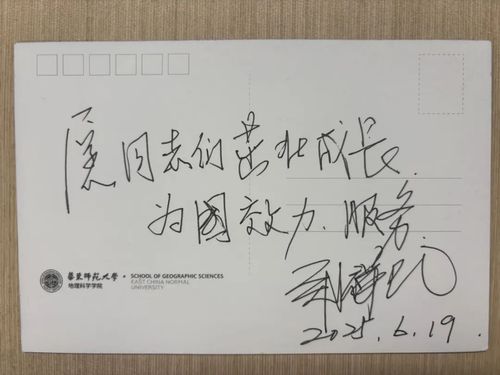 愿同志们茁壮成长
为國效力、服务
2025.6.19.
華東師範大學
地理科学学院
SCHOOL OF GEOGRAPHIC SCIENCES
EAST CHINA NORMAL
UNIVERSITY